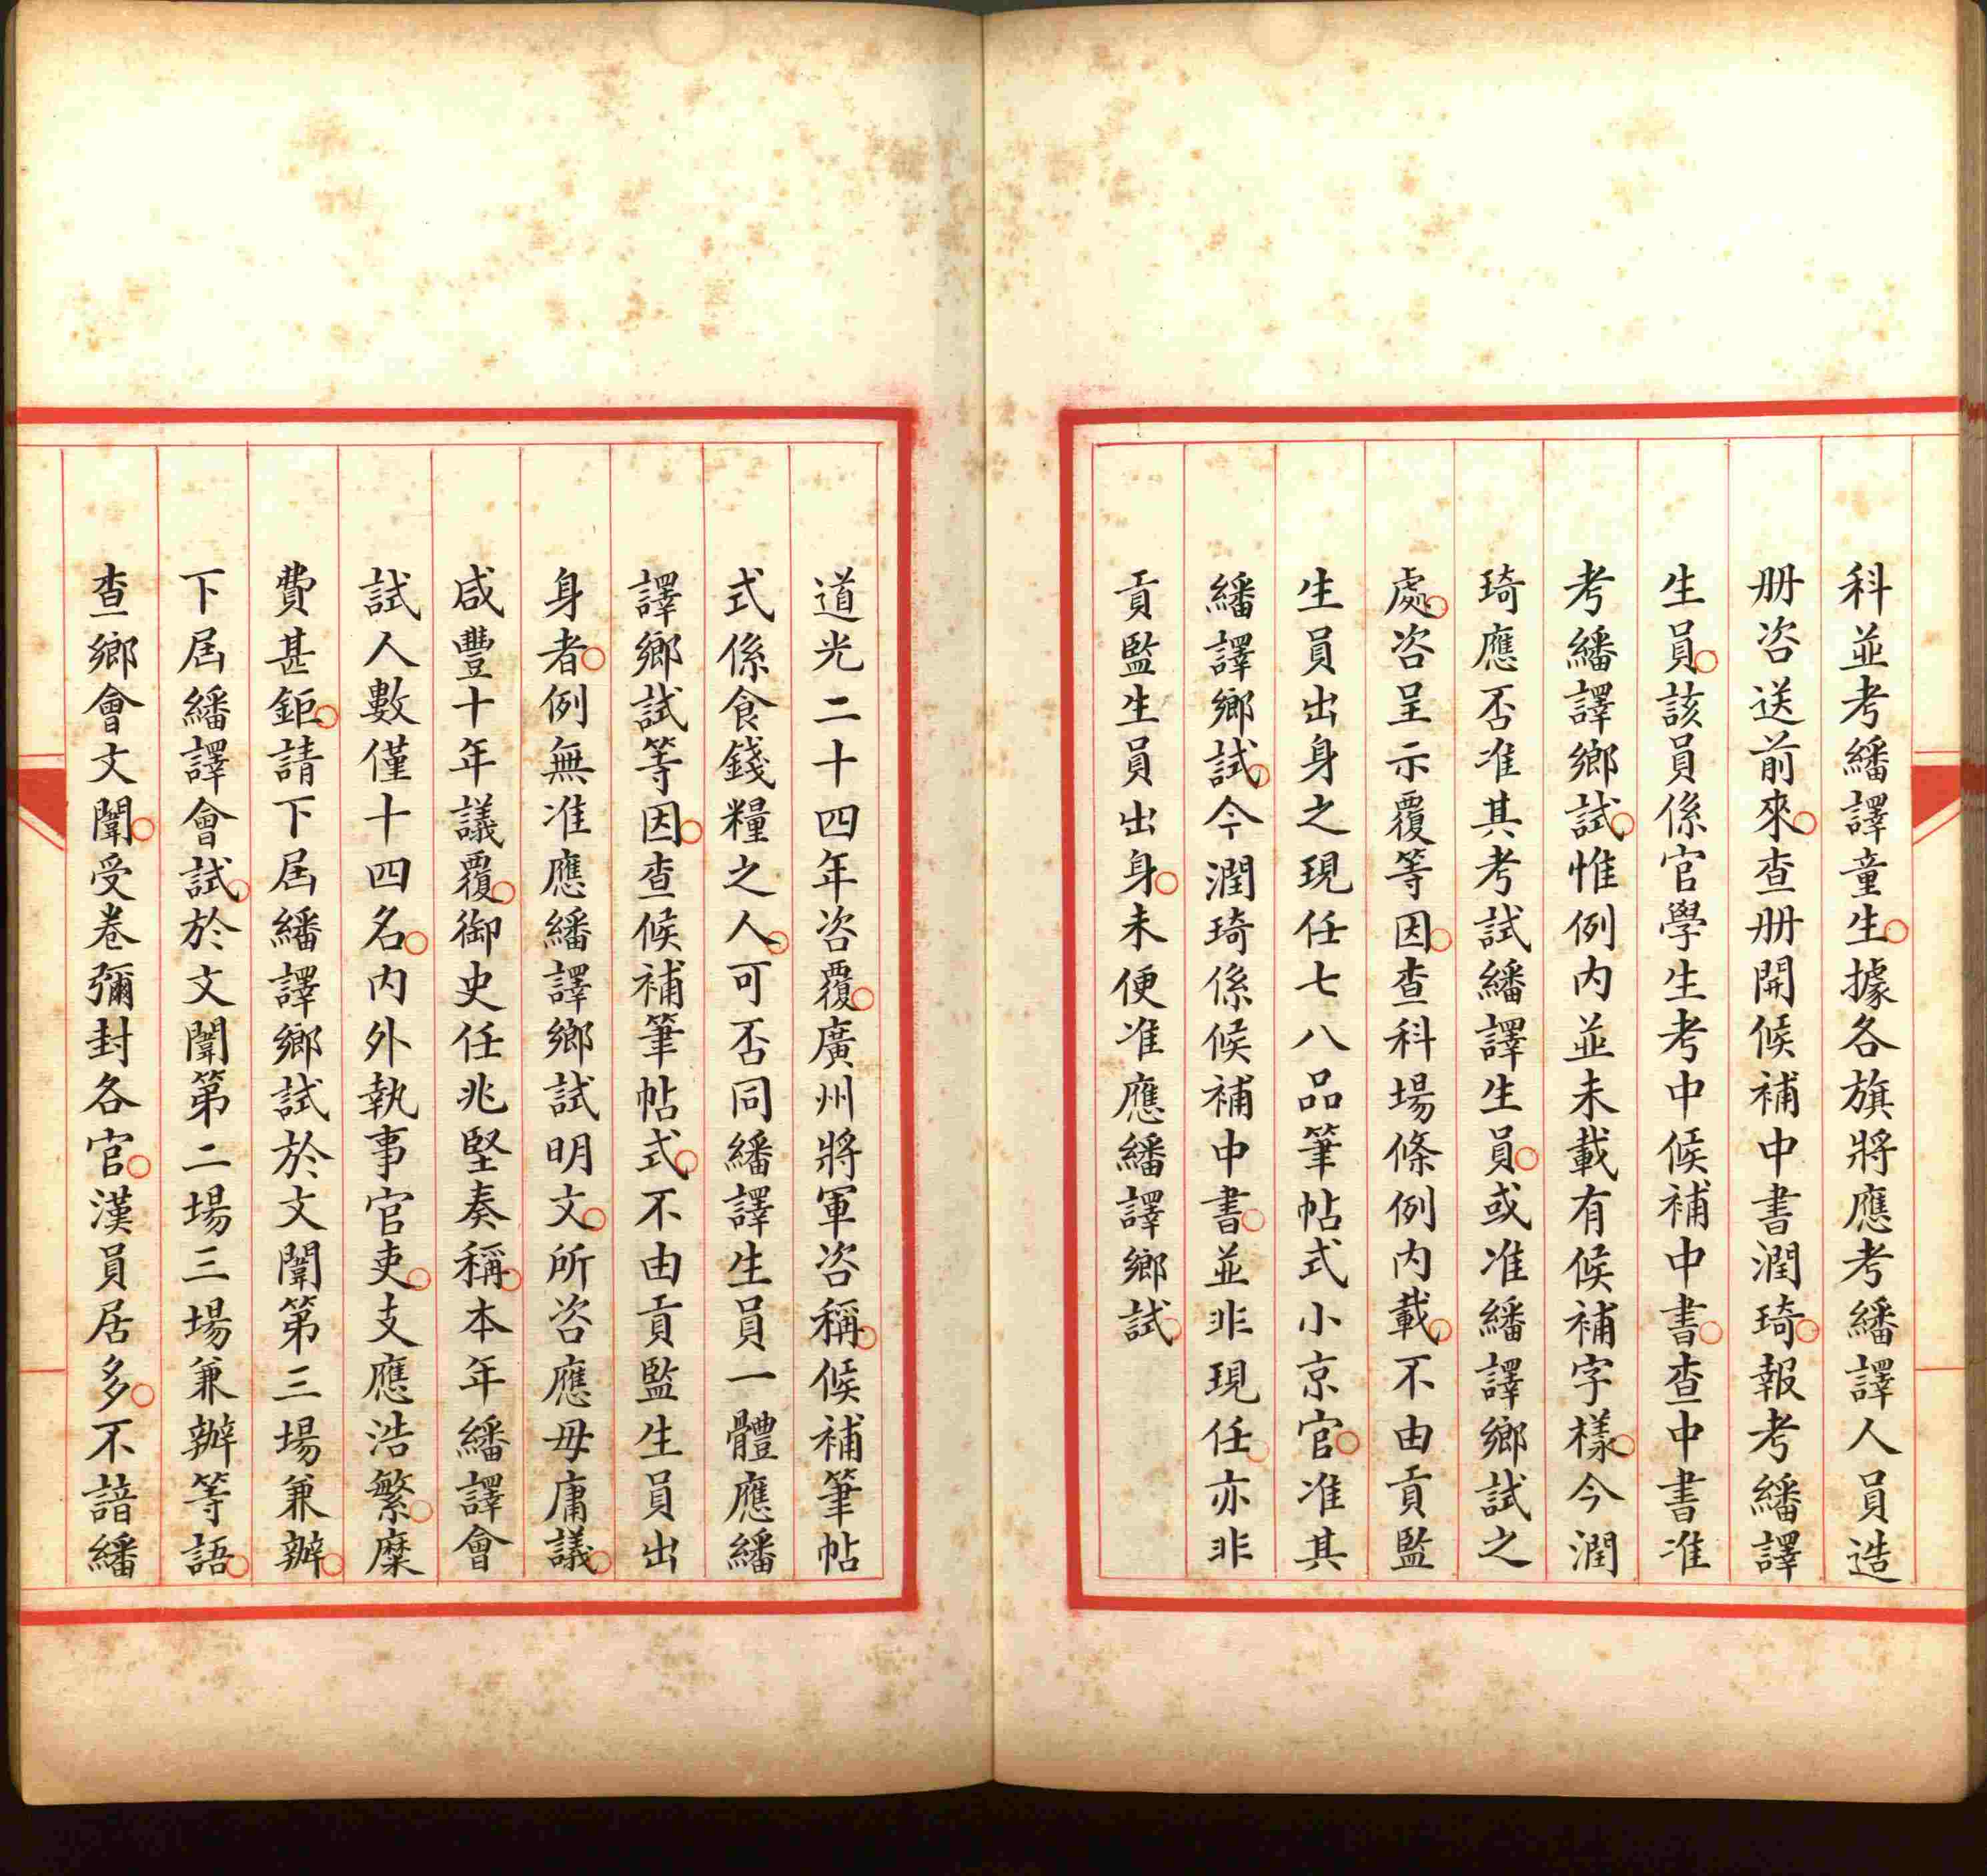 科並考繙譯童生○據各旗將應考繙譯人員造
册咨送前來○查册開候補中書潤琦○報考繙譯
生員○該員係官學生考中候補中書○查中書准
考繙譯鄉試○惟例内並未載有候補字樣○今潤
琦應否准其考試繙譯生員○或准繙譯鄉試之
處○咨呈示覆等因○查科場條例内載○不由貢監
生員出身之現任七八品筆帖式小京官○准其
繙譯鄉試○今潤琦係候補中書○並非現任○亦非
貢監生員出身○未便准應繙譯鄉試○
道光二十四年咨覆○廣州將軍咨稱○候補筆帖
式係食錢糧之人○可否同繙譯生員一體應繙
譯鄉試等因○查候補筆帖式○不由貢監生員出
身者○例無准應繙譯鄉試明文○所咨應毋庸議○
咸豐十年議覆○御史任兆堅奏稱○本年繙譯會
試人數僅十四名○内外執事官吏○支應浩繁○糜
費甚鉅○請下屆繙譯鄉試於文闈第三場兼辦○
下屆繙譯會試○於文闈第二場三場兼辦等語○
查鄉會文闈○受卷彌封各官○漢員居多○不諳繙